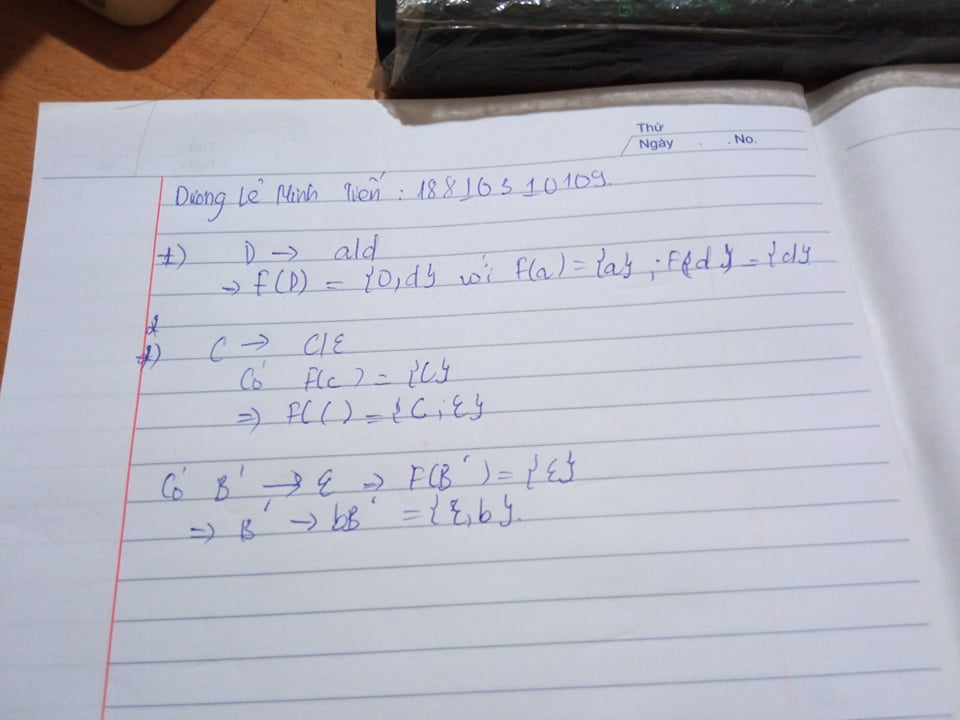 Thứ
Ngày . . No.
Dương Lê Minh : 18810310109.
+) D → a|d
→ F(D) = {D,d} với F(a) = {a} ; F{d} = {d}
+) C → C|ε
Có F(c) = {C}
=> F(C) = {C; ε}
Có B' → ε => F(B') = {ε}
=> B' → bB' = {ε,b}.